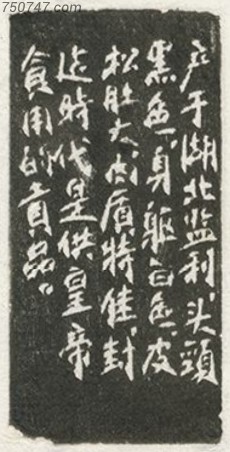 750747.com
产于湖北监利、头頸
黑色、身躯白色、皮
松肚大、肉質特佳、封
建時代是供皇帝
食用的貢品。